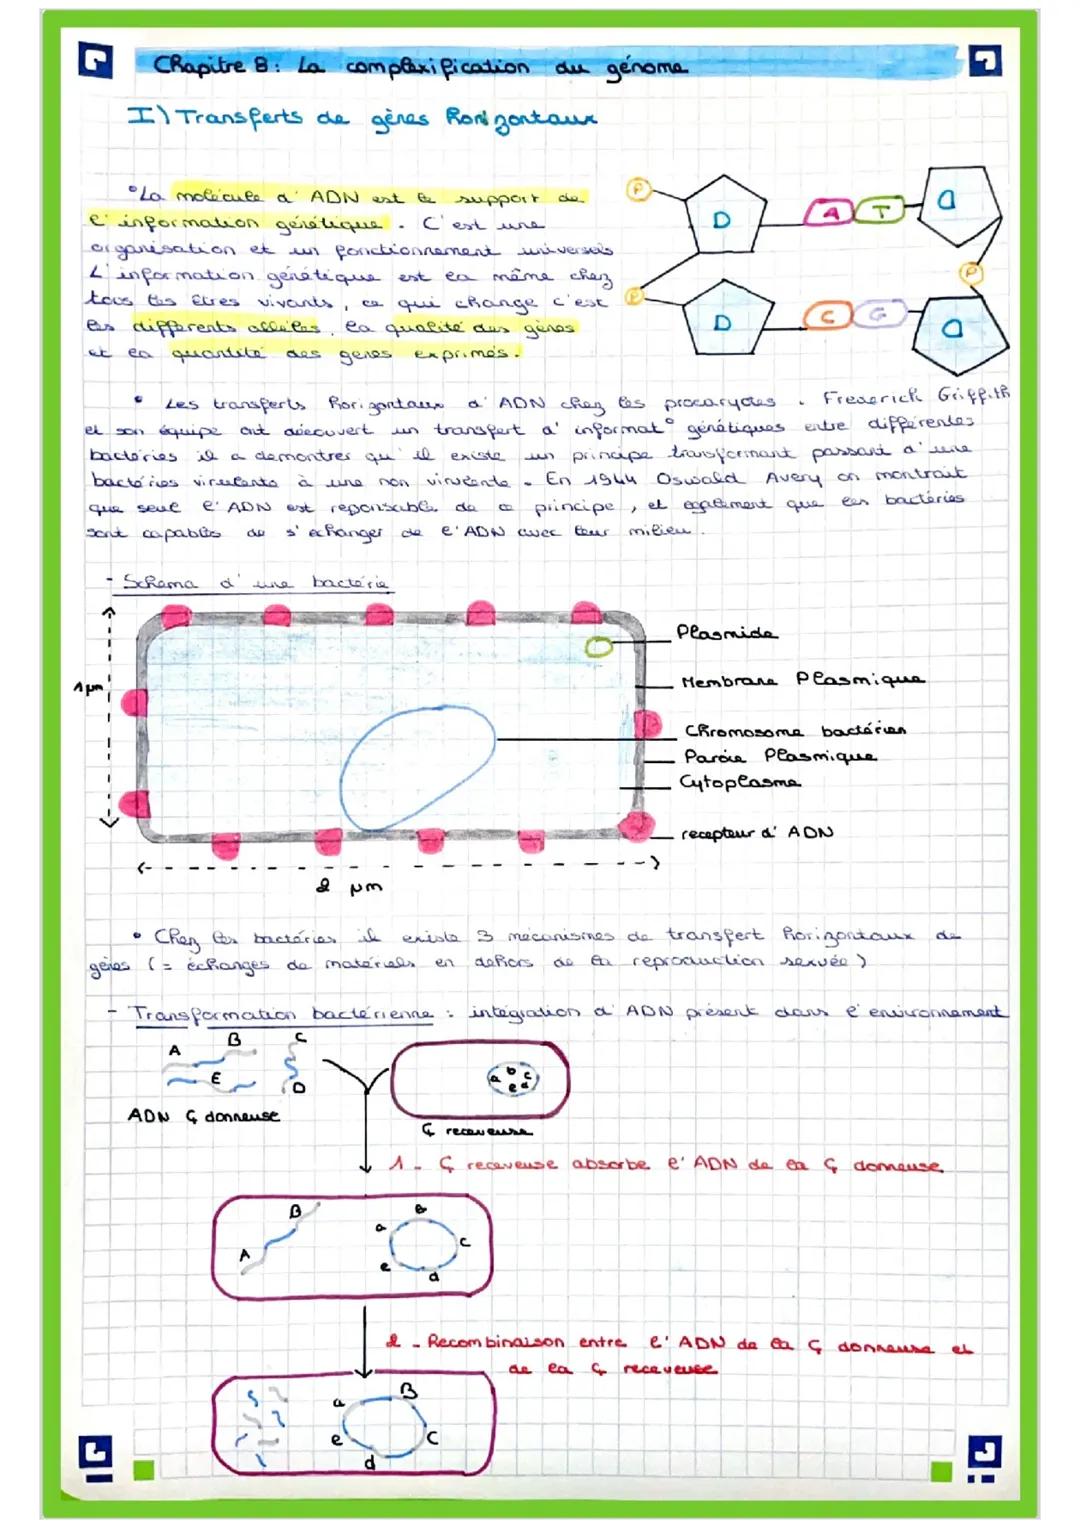 Chapitre B : La complexification du génome
I) Transferts de gènes Horizontaux
° La molécule d'ADN est le support de
l'information génétique. C'est une
organisation et un fonctionnement universels
L'information génétique est la même chez
tous les êtres vivants, ce qui change c'est
les différents allèles, la qualité des gènes
et la quantité des genes exprimés.
P
D
A
T
D
P
P
D
C
G
D
• Les transferts horizontaux d'ADN chez les procaryotes. Frederich Griffith
et son équipe ont découvert un transfert d'informat° génétiques entre différentes
bactéries il a demontrer qu'il existe un principe transformant passant d'une
bactéries virulente à une non virulente. En 1944 Oswald Avery on montrait
que seul l'ADN est reponsable de ce principe, et egalement que les bactéries
sont capables de s'echanger de l'ADN avec leur milieu.
- Schema d'une bactérie
1 µm
Plasmide
Membrane Plasmique
Chromosome bactérien
Paroie Plasmique
Cytoplasme
recepteur d'ADN
2 µm
• Chez les bactéries il existe 3 mécanismes de transfert horizontaux de
gènes (= échanges de matériels en dehors de la reproduction sexuée)
- Transformation bactérienne : intégration d'ADN présent dans l'environnement
A B C
E D
a b c
e d
ADN ς donneuse
ς receveuse
1 - ς receveuse absorbe l'ADN de la ς donneuse
B
A
a b c
e d
2 - Recombinaison entre l'ADN de la ς donneuse et
de la ς receveuse
a B
e C
d